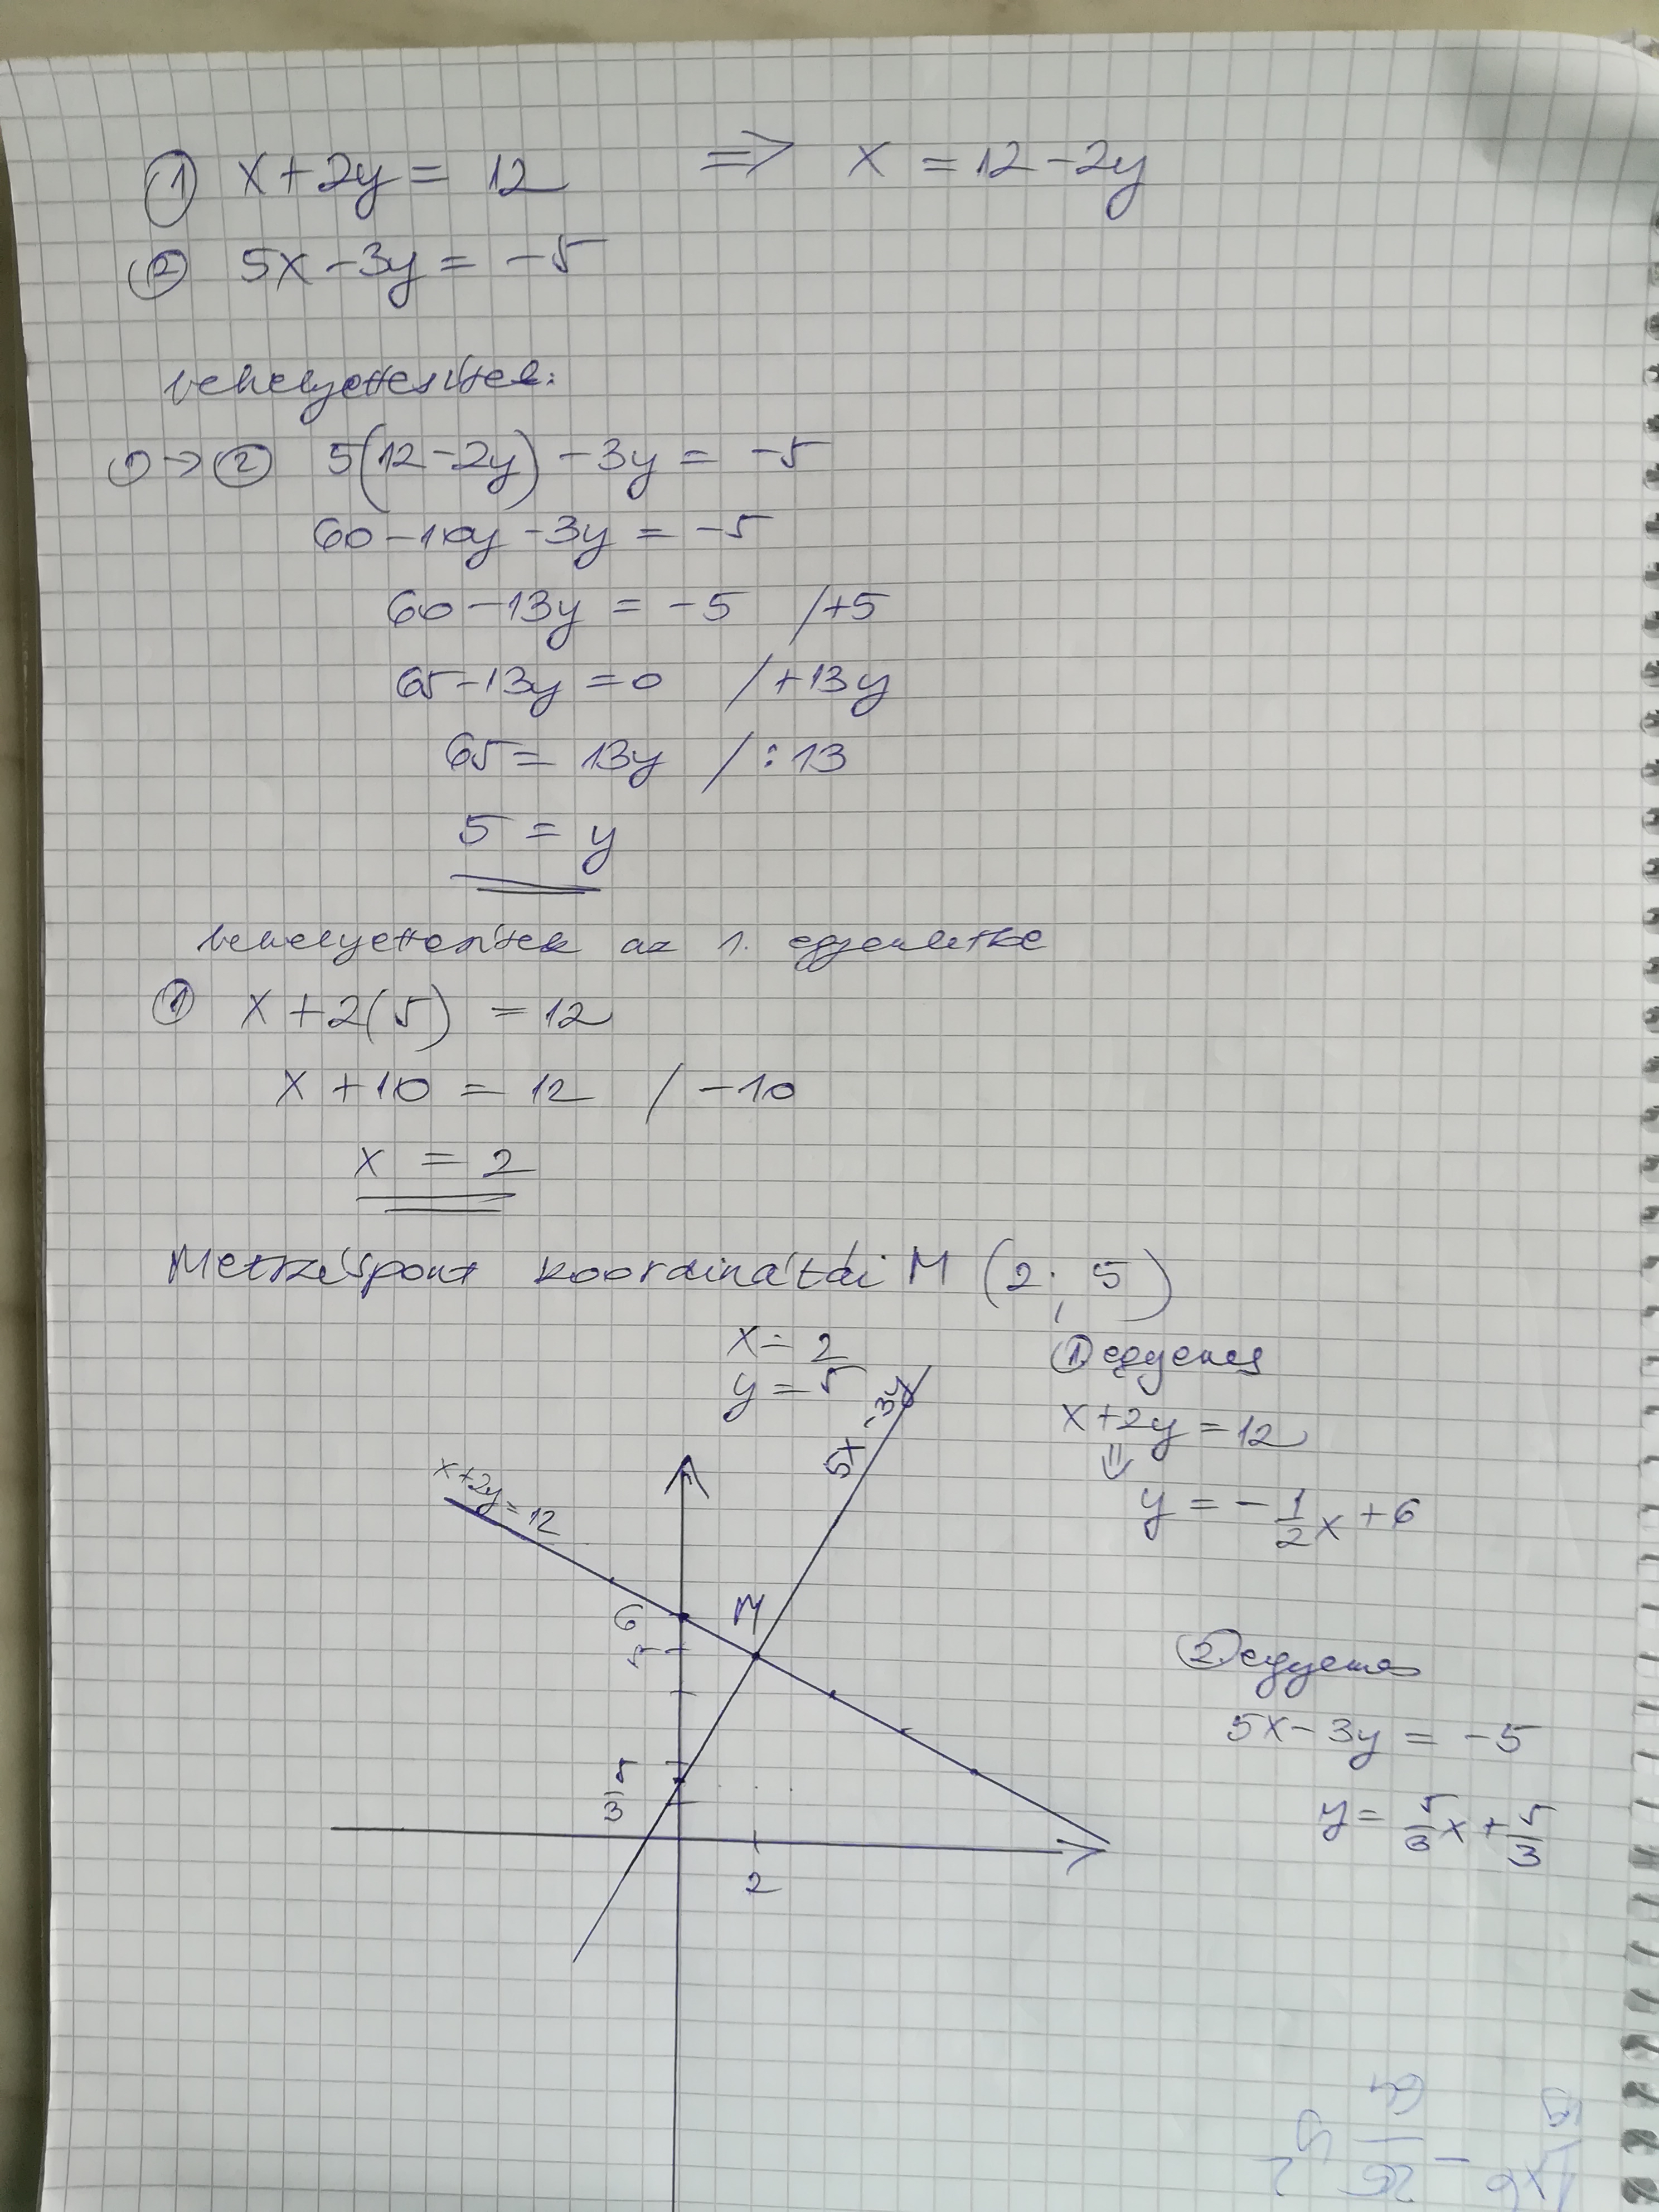 ① x+2y = 12 => x = 12-2y
② 5x-3y = -5
behelyettesítek:
①→② 5(12-2y)-3y = -5
60-10y-3y = -5
60-13y = -5 /+5
65-13y = 0 /+13y
65 = 13y /:13
5 = y
behelyettesítek az 1. egyenletbe
① x+2(5) = 12
x+10 = 12 /-10
x = 2
Metszéspont koordinátái M (2; 5)
x = 2
y = 5
① egyenes
x+2y = 12
⇓
y = -1/2x +6
5x -3y
x+2y=12
6
5
M
5/3
2
② egyenes
5x-3y = -5
y = 5/3x + 5/3